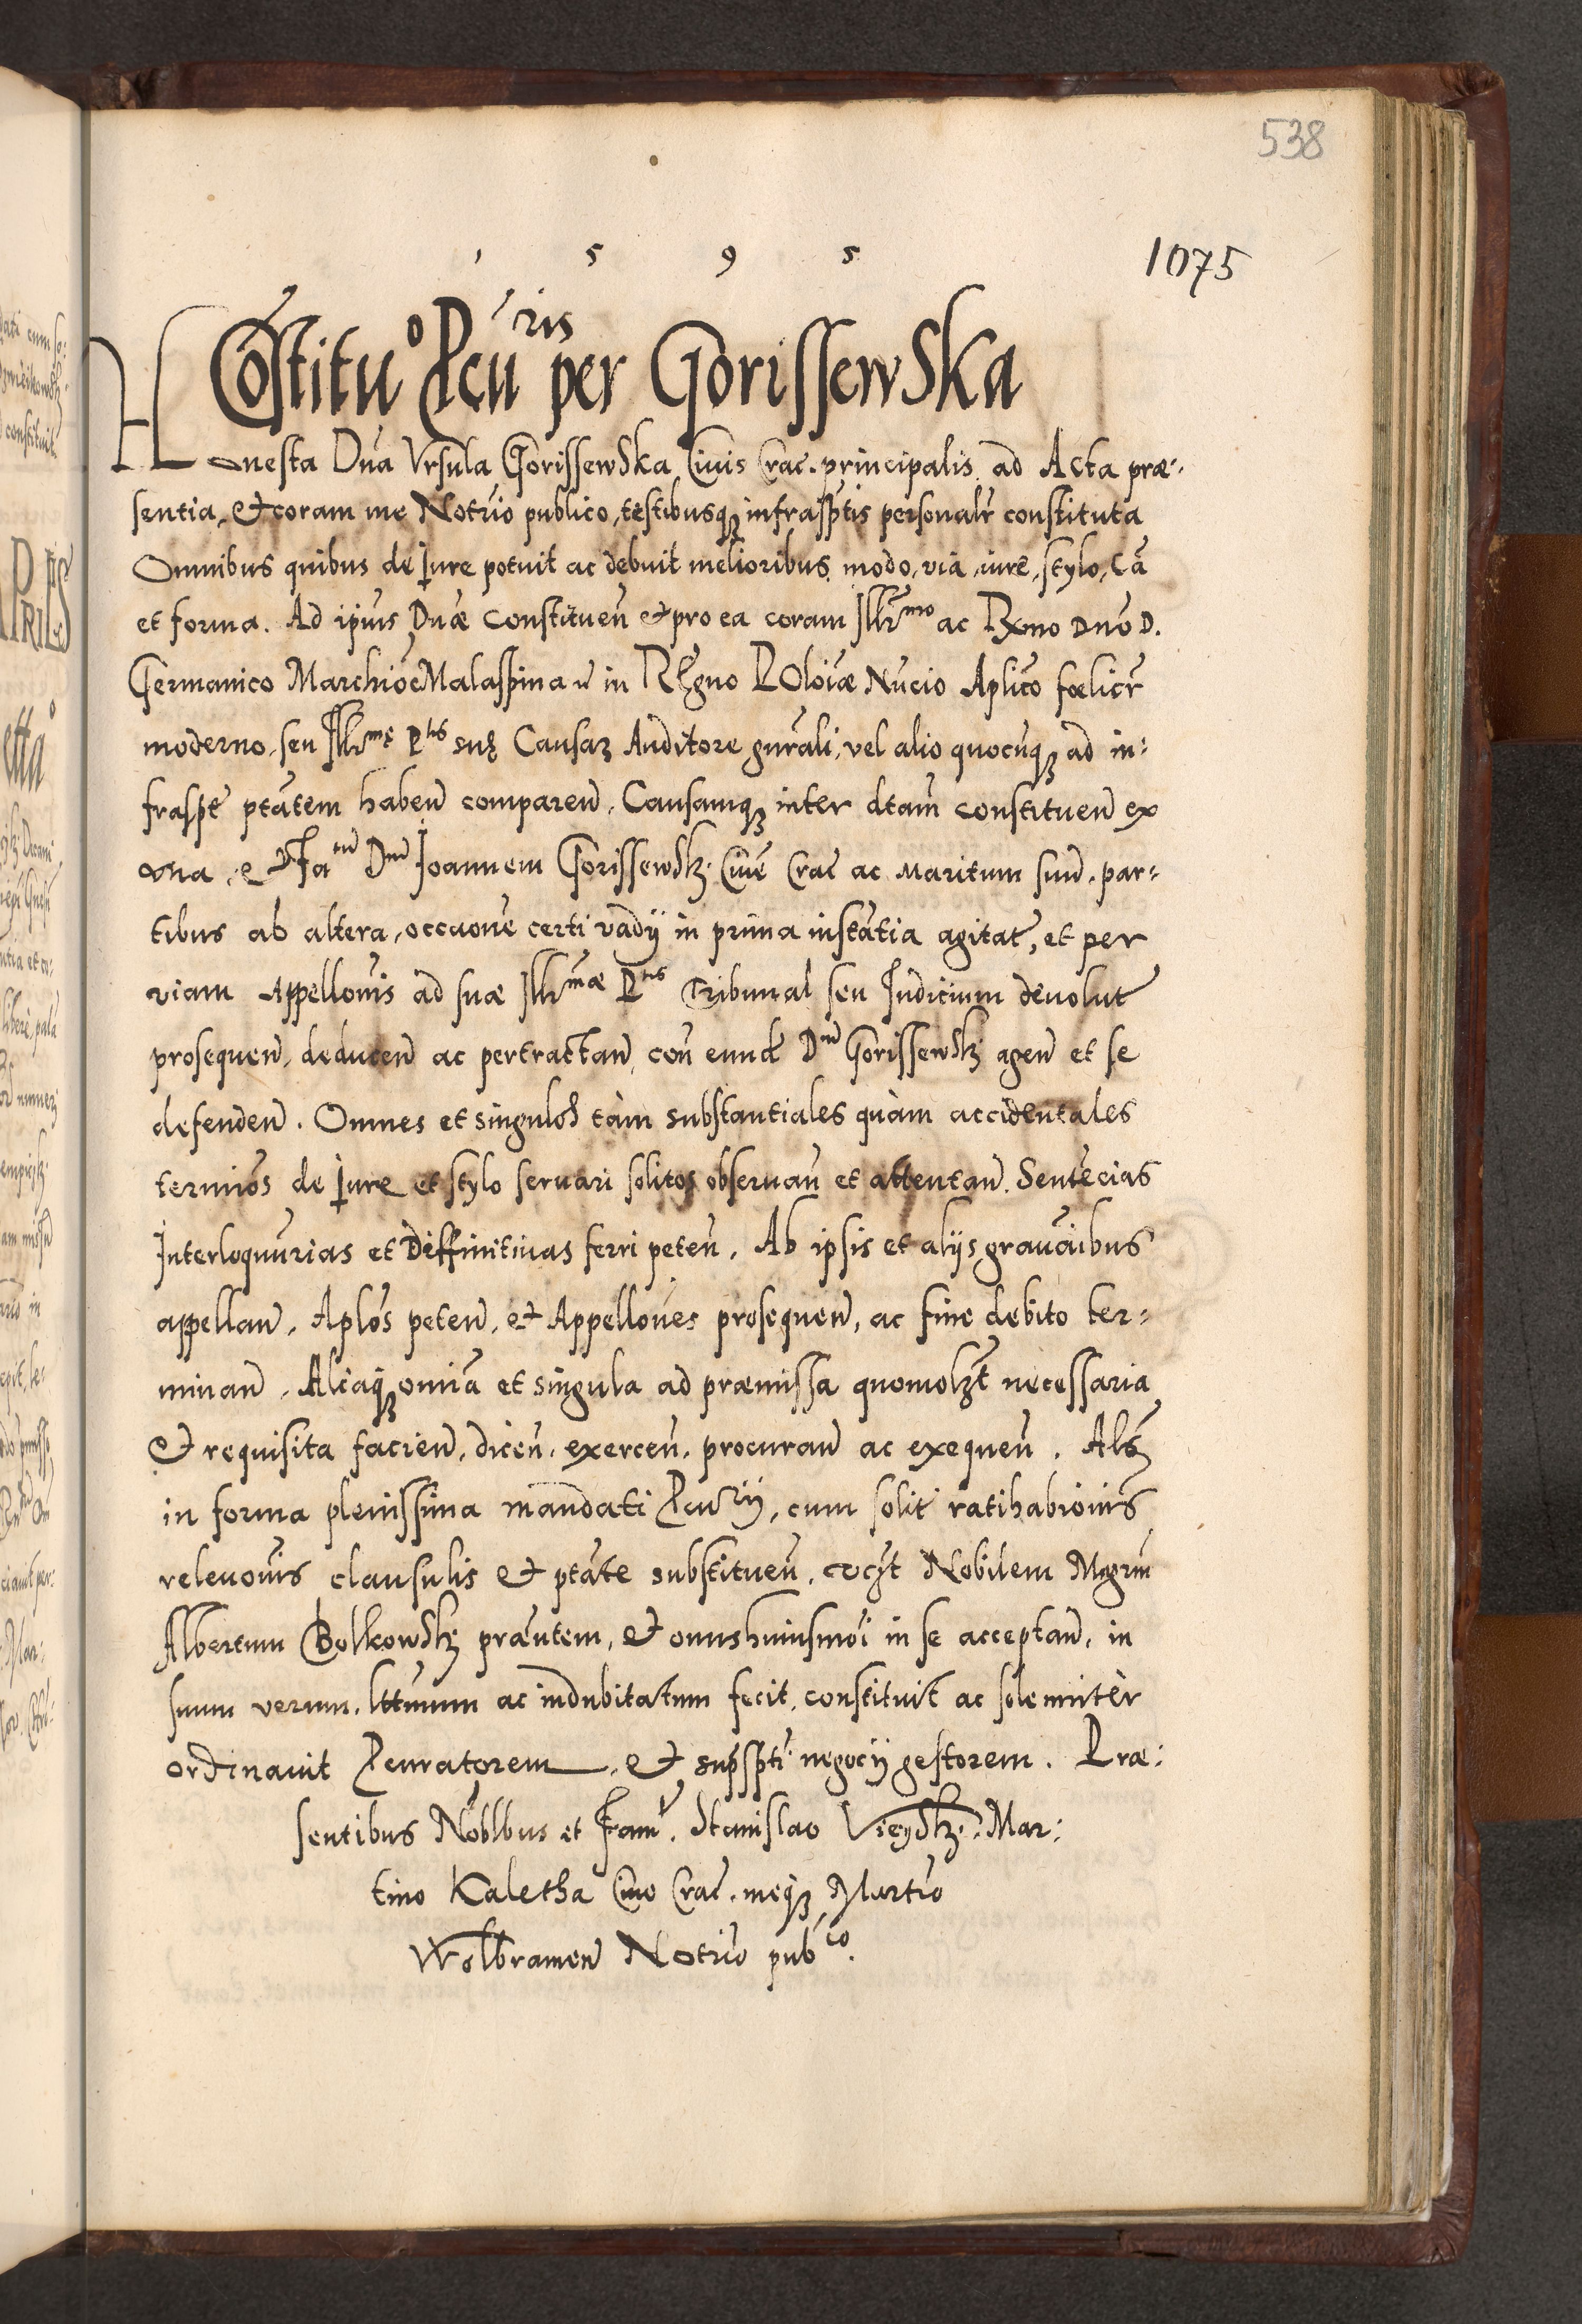 538
1 5 9 5
1075
Cōstituo Pcuris per GorissewSka
Honesta Dn̄a Vrsula GorissewSka Ciuis Crac. principalis ad Acta præ-
sentia, et coram me Notr̄io publico, testibusq̨ infrasp̄tis personalr̄ constituta
Omnibus quibus de Jure potuit ac debuit melioribus modo, via, iure, stylo, cā
et forma. Ad ip̄ius Dn̄æ Constituen̄ et pro ea coram Illr̄mo ac Rx̄mo Dnō D.
Germanico Marchiōe Malaspina in Regno Polōiæ Nūcio Ap̄lico fœlicr̄
moderno, seu Illr̄mę Ptis suę Causaꝝ Auditore gnr̄ali, vel alio quocūq̨ ad in-
frasp̄t ptātem haben̄ comparen̄. Causamq̨ inter dtam̄ constituen̄ ex
vna, et Fatū Dnū Joannem GorissewSk. Ciuē Crac ac Maritum suū. par-
tibus ab altera, occaōne certi vadij in prima instātia agitat, et per
viam Appellōnis ad suæ Illr̄mæ Ptis Tribunal seu Judicium deuolut
prosequen̄, deducen̄ ac pertractan̄, con̄ eund Dnū GorissewSk. agen̄ et se
defenden̄. Omnes et singulos tàm substantiales quàm accidentales
terminōs de Jure et stylo seruari solitos obseruan̄ et attentan̄. Sentēcias
Interloqun̄rias et Diffinitiuas ferri peten̄. Ab ipsis et alijs grauāibus
appellan̄, Aplōs peten̄, et Appellōnes prosequen̄, ac fine debito ter-
minan̄. Aliaq̨ omīa et singula ad præmissa quomolꝫt necessaria
et requisita facien̄, dicen̄, exercen̄, procuran̄ ac exequen̄. Als̄
in forma plenissima mandati Pcurij, cum solit ratihabiōnis
releuōnis clausulis et ptāte substituen̄, Nobilem Mgrm̄
Albertum BolkowSk. præntem, et onus huiusmōi in se acceptan̄, in
suum verum, lttimum ac indubitatum fecit, constituit ac solemnitèr
ordinauit Pcuratorem, et supsp̄ti negocij gestorem. Præ-
sentibus Nōblbus et Fam. Stanislao Mar-
tino Kaletha Ciue Crac. meq̨ Martīo
Wolbramen̄ Notr̄io pubco.